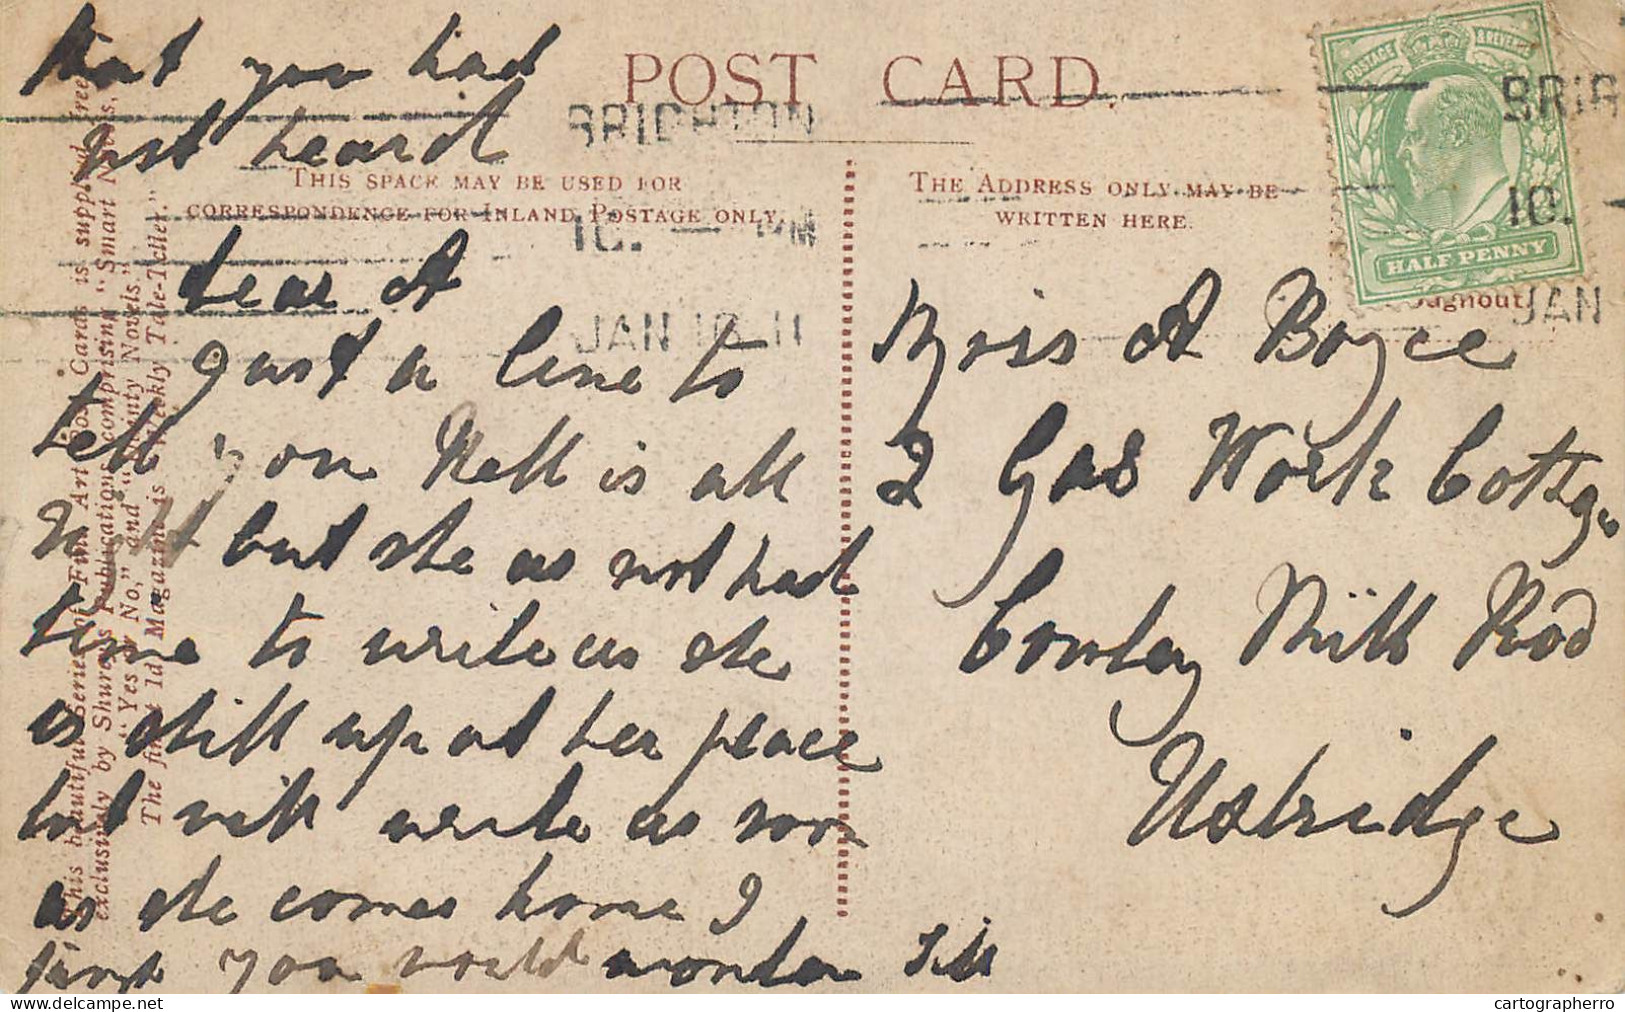 that you had
just heard
POST CARD.
BRIGHTON
BRIG
THIS SPACE MAY BE USED FOR
CORRESPONDENCE FOR INLAND POSTAGE ONLY.
THE ADDRESS ONLY MAY BE
WRITTEN HERE.
POSTAGE & REVENUE
HALF PENNY
10.
JAN
JAN 10 11
Dear A
Just a line to
tell you Nell is all
right but she as not had
time to write as she
is still up at her place
but will write as soon
as she comes home I
you would wonder
Miss A Boyce
2 Gas Work Cottgs
Cowley Mill Rod
Uxbridge
This beautiful Series of Fine Art Post Cards is supplied free
exclusively by Shurey's Publications, comprising "Smart Novels,"
"Yes or No," and "Dainty Novels."
The finest 1d Magazine is Weekly Tale-Teller."
cartographerro